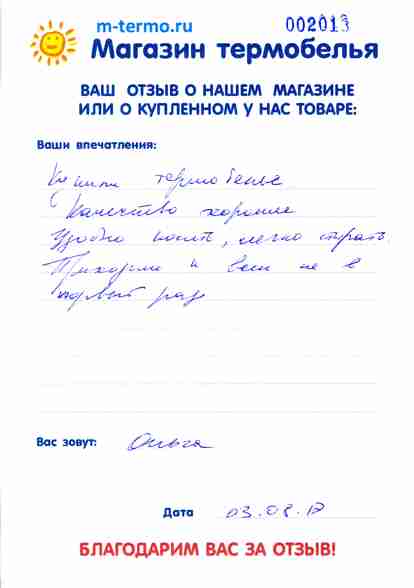 m-termo.ru
002013
Магазин термобелья
ВАШ ОТЗЫВ О НАШЕМ МАГАЗИНЕ
ИЛИ О КУПЛЕННОМ У НАС ТОВАРЕ:
Ваши впечатления:
Купили термобелье
Качество хорошее
Удобно носить, легко стирать.
Приходим к Вам не в
первый раз
Вас зовут: Ольга
Дата 03.08.17
БЛАГОДАРИМ ВАС ЗА ОТЗЫВ!